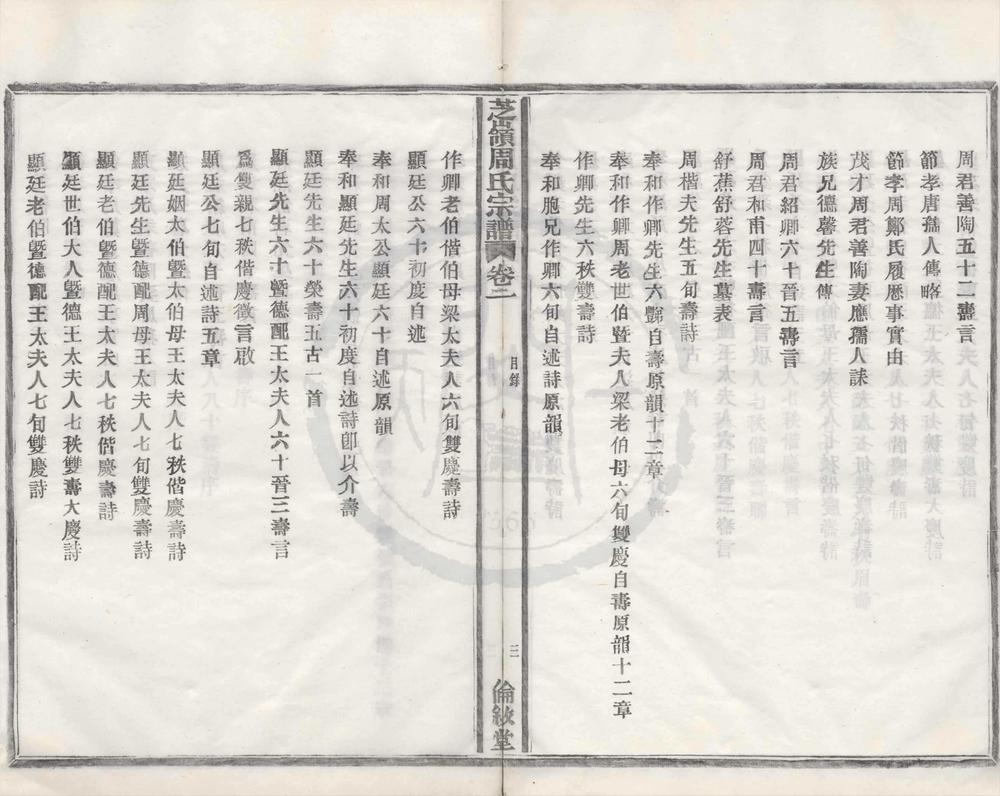 周君善陶五十二壽言
節孝唐孺人傳略
節孝周鄭氏履厯事實由
茂才周君善陶妻應孺人誄
族兄德馨先生傳
周君紹卿六十晉五壽言
周君和甫四十壽言
舒蕉舒蓉先生墓表
周楷夫先生五旬壽詩
奉和作卿先生六豑自壽原韻十二章
奉和作卿周老世伯暨夫人梁老伯母六旬雙慶自壽原韻十二章
作卿先生六秩雙壽詩
奉和胞兄作卿六旬自述詩原韻
芝嶺周氏宗譜
卷二
目錄
三
倫敘堂
作卿老伯偕伯母梁太夫人六旬雙慶壽詩
顯廷公六十初度自述
奉和周太公顯廷六十自述原韻
奉和顯廷先生六十初度自述詩卽以介壽
顯廷先生六十榮壽五古一首
顯廷先生六十暨德配王太夫人六十晉三壽言
爲雙親七秩偕慶徵言啟
顯廷公七旬自述詩五章
顯廷姻太伯暨太伯母王太夫人七秩偕慶壽詩
顯廷先生暨德配周母王太夫人七旬雙慶壽詩
顯廷老伯暨德配王太夫人七秩偕慶壽詩
顯廷世伯大人暨德王太夫人七秩雙壽大慶詩
顯廷老伯暨德配王太夫人七旬雙慶詩